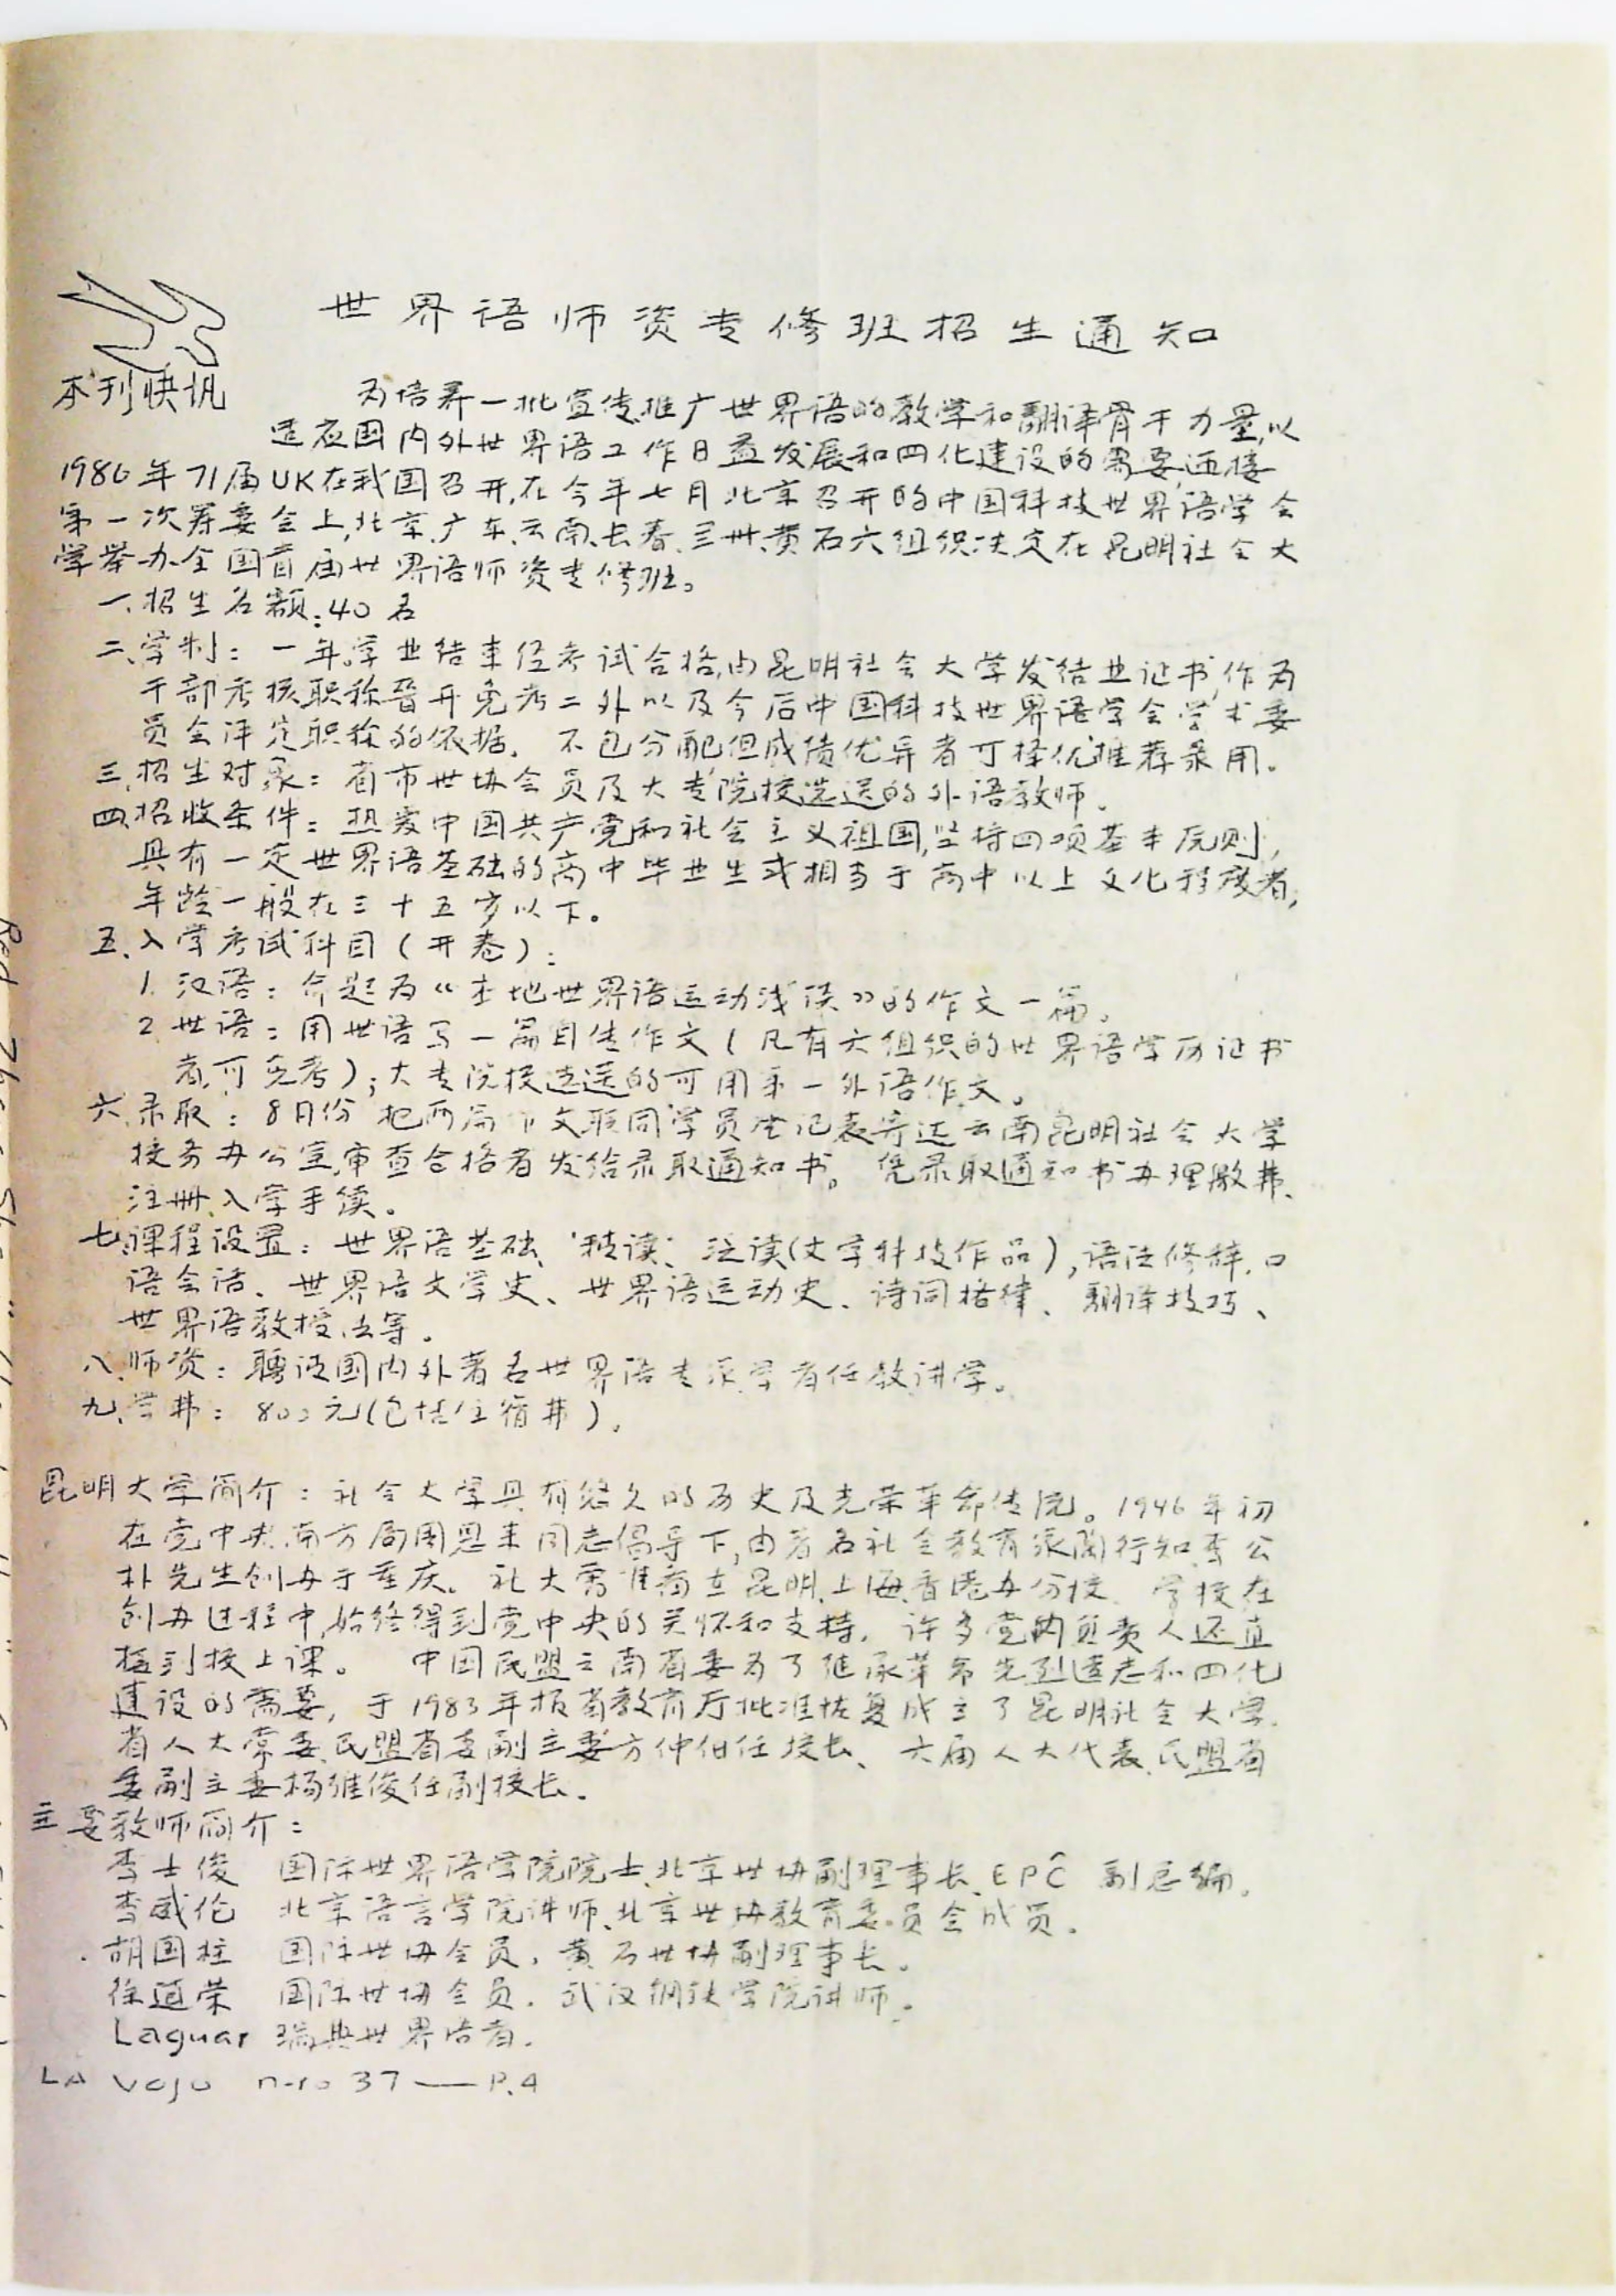 世界语师资专修班招生通知
本刊快讯
为培养一批宣传推广世界语的教学和翻译骨干力量,以
适应国内外世界语工作日益发展和四化建设的需要,迎接
1986年71届UK在我国召开,在今年七月北京召开的中国科技世界语学会
第一次筹委会上,北京、广东、云南、长春、三世、黄石六组织决定在昆明社会大
学举办全国首届世界语师资专修班。
一、招生名额:40名
二、学制:一年,学业结束经考试合格,由昆明社会大学发结业证书,作为
干部考核职称晋升免考二外以及今后中国科技世界语学会学术委
员会评定职称的依据。不包分配但成绩优异者可择优推荐录用。
三、招生对象:省市世协会员及大专院校选送的外语教师。
四、招收条件:热爱中国共产党和社会主义祖国,坚持四项基本原则,
具有一定世界语基础的高中毕业生或相当于高中以上文化程度者,
年龄一般在三十五岁以下。
五、入学考试科目(开卷):
1.汉语:命题为《本地世界语运动浅谈》的作文一篇。
2.世语:用世语写一篇自传作文(凡有六组织的世界语学历证书
者,可免考);大专院校选送的可用第一外语作文。
六、录取:8月份把两篇作文联同学员登记表寄送云南昆明社会大学
校务办公室,审查合格者发给录取通知书。凭录取通知书办理缴费、
注册、入学手续。
七、课程设置:世界语基础、精读、泛读(文学科技作品),语法修辞、口
语会话、世界语文学史、世界语运动史、诗词格律、翻译技巧、
世界语教授法等。
八、师资:聘请国内外著名世界语专家学者任教讲学。
九、学费:800元(包括住宿费)。
昆明大学简介:社会大学具有悠久的历史及光荣革命传统。1946年初
在党中央南方局周恩来同志倡导下,由著名社会教育家陶行知、李公
朴先生创办于重庆。社大曾准备在昆明、上海、香港办分校。学校在
创办过程中,始终得到党中央的关怀和支持,许多党内负责人还直
接到校上课。 中国民盟云南省委为了继承革命先烈遗志和四化
建设的需要,于1983年报省教育厅批准恢复成立了昆明社会大学。
省人大常委、民盟省委副主委方仲伯任校长、六届人大代表、民盟省
委副主委杨维俊任副校长。
主要教师简介:
李士俊 国际世界语学院院士、北京世协副理事长、EPĈ 副总编。
李威伦 北京语言学院讲师、北京世协教育委员会成员。
胡国柱 国际世协会员,黄石世协副理事长。
徐道荣 国际世协会员,武汉钢铁学院讲师。
Laguar 瑞典世界语者。
LA VOJO n-ro 37——P.4